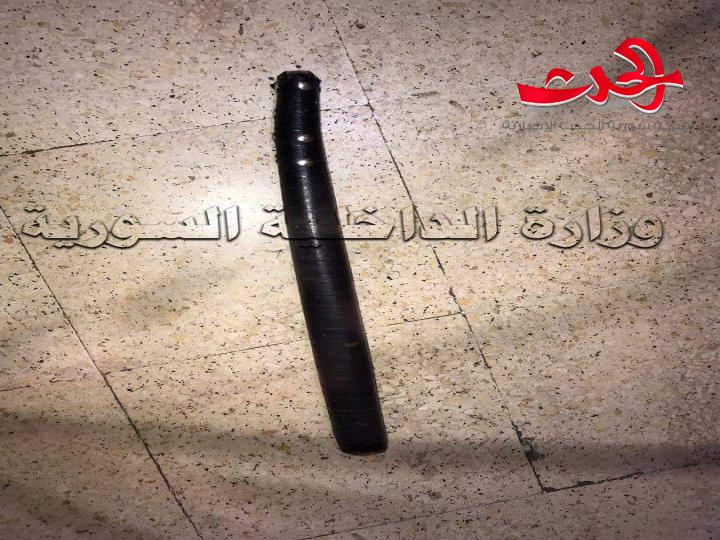 الحدث
شبكة سورية الحدث الاخبارية
وزارة الداخلية السورية